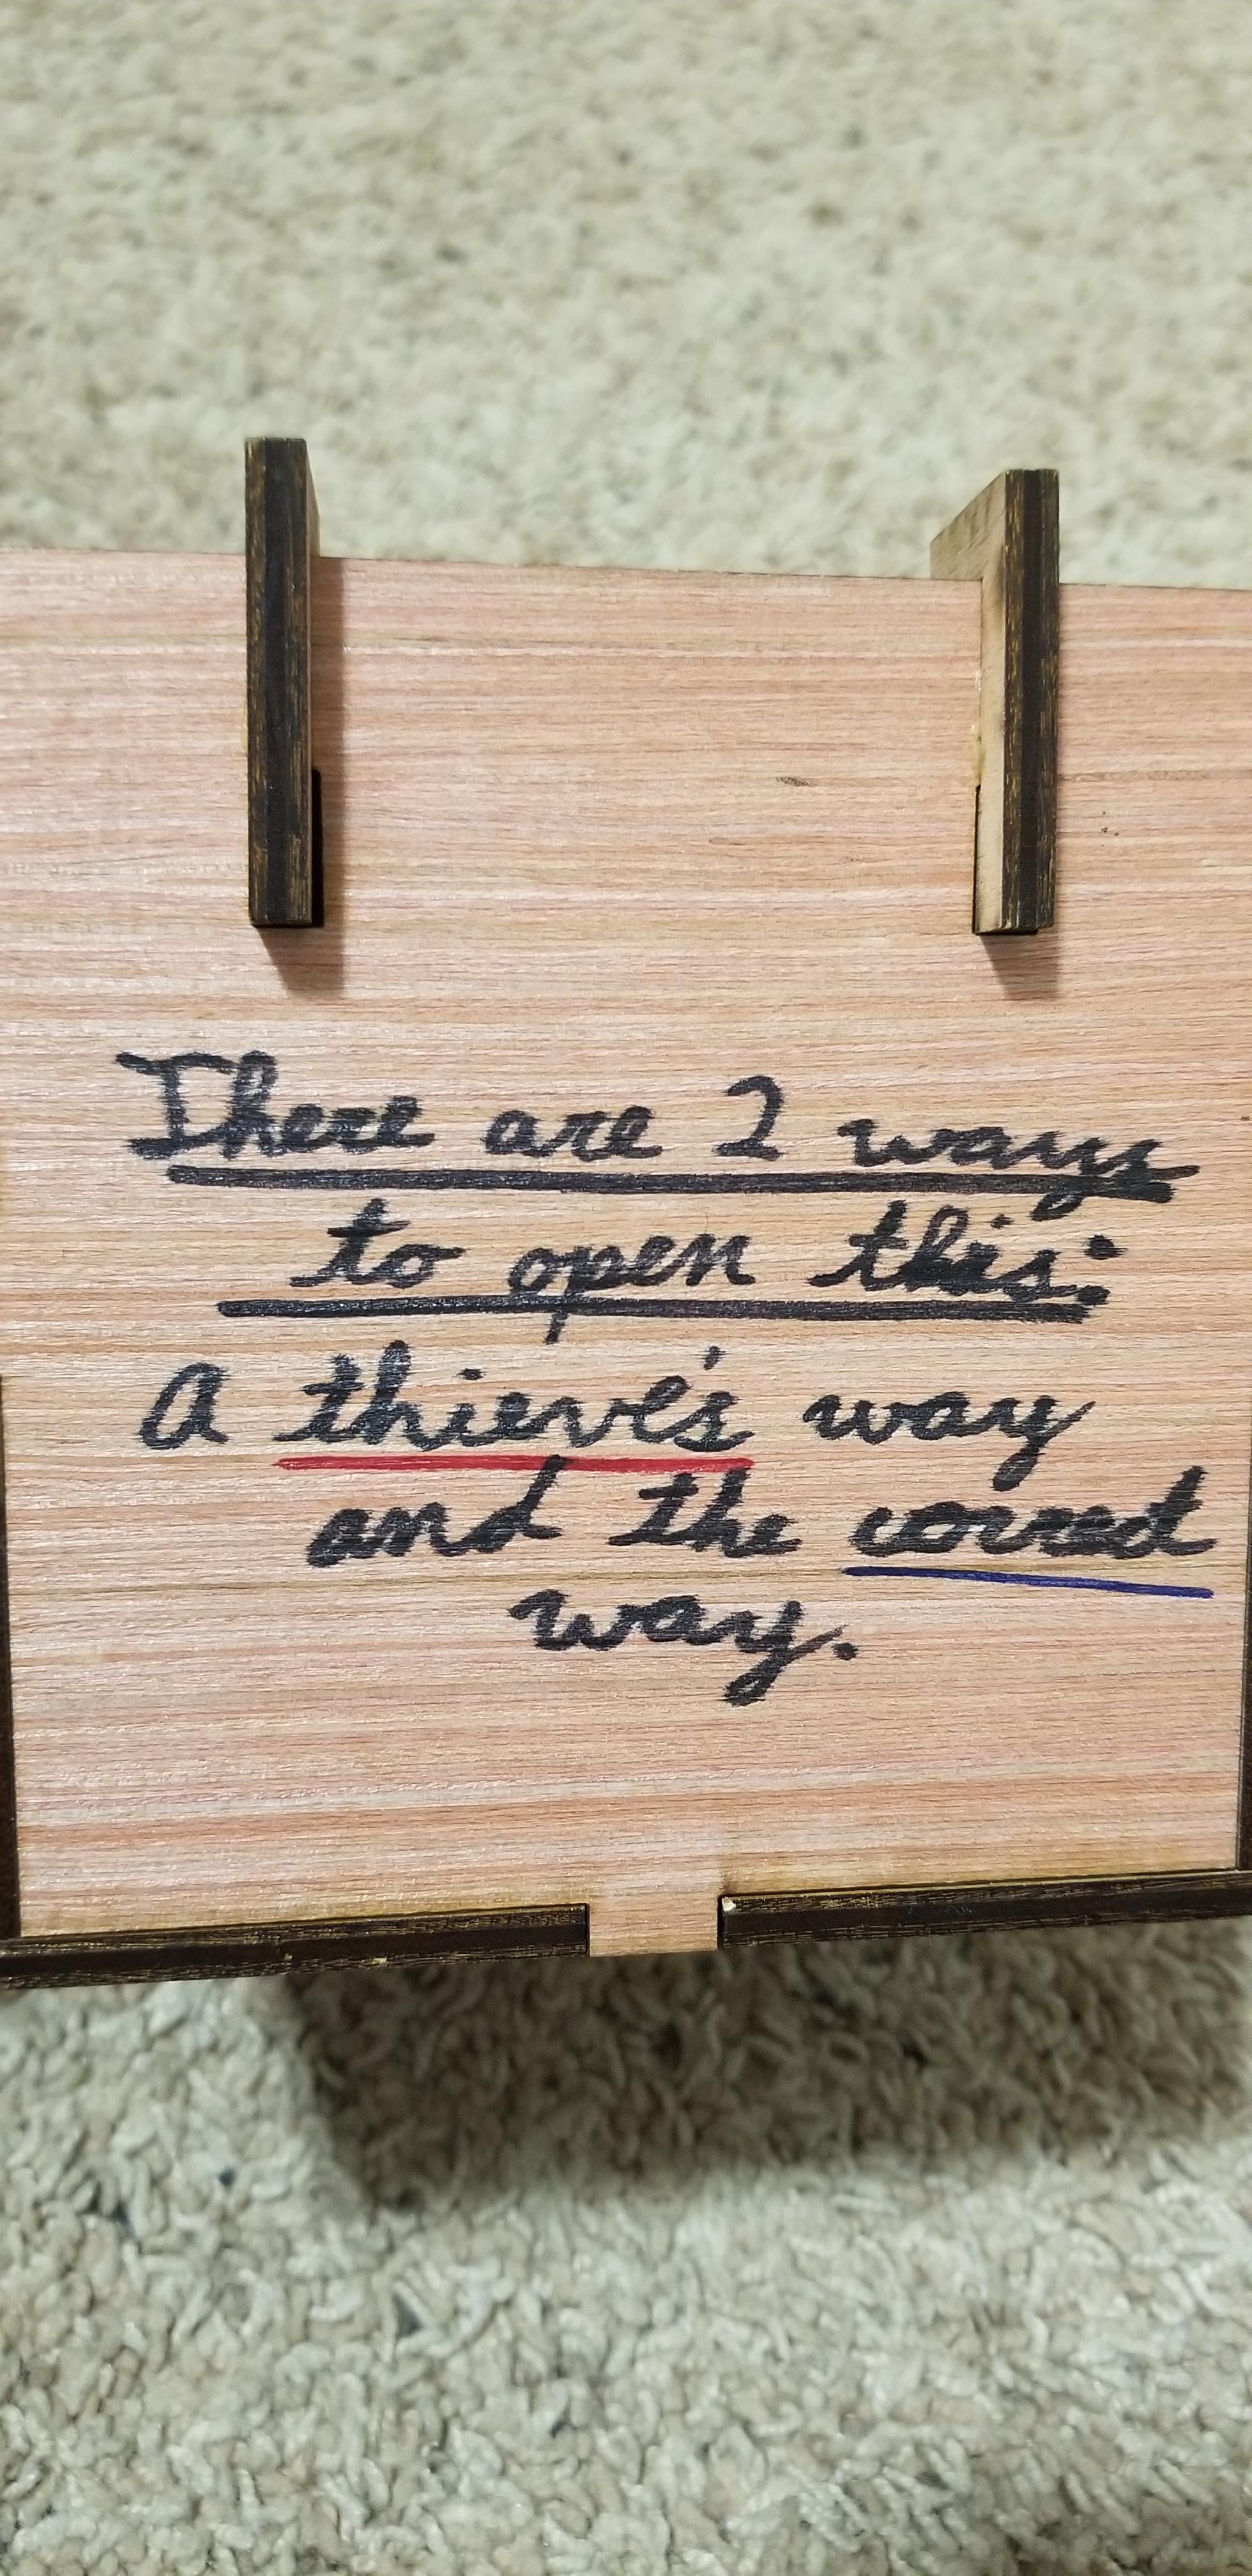 There are 2 ways
to open this:
A thieve's way
and the correct
way.